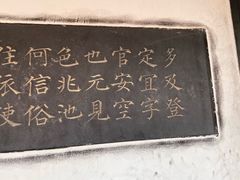 多双登
定宜字
官安空
也元見
色兆池
何信俗
住依使